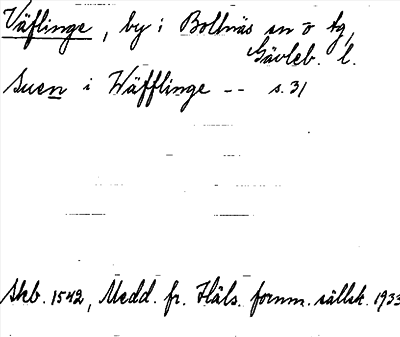 Väflinge, by i Bollnäs sn o tg,
Gävleb. l.
Suen i Wäfflinge -- s. 31
Skb. 1542, Medd. fr. Häls. fornm. sällsk. 1933